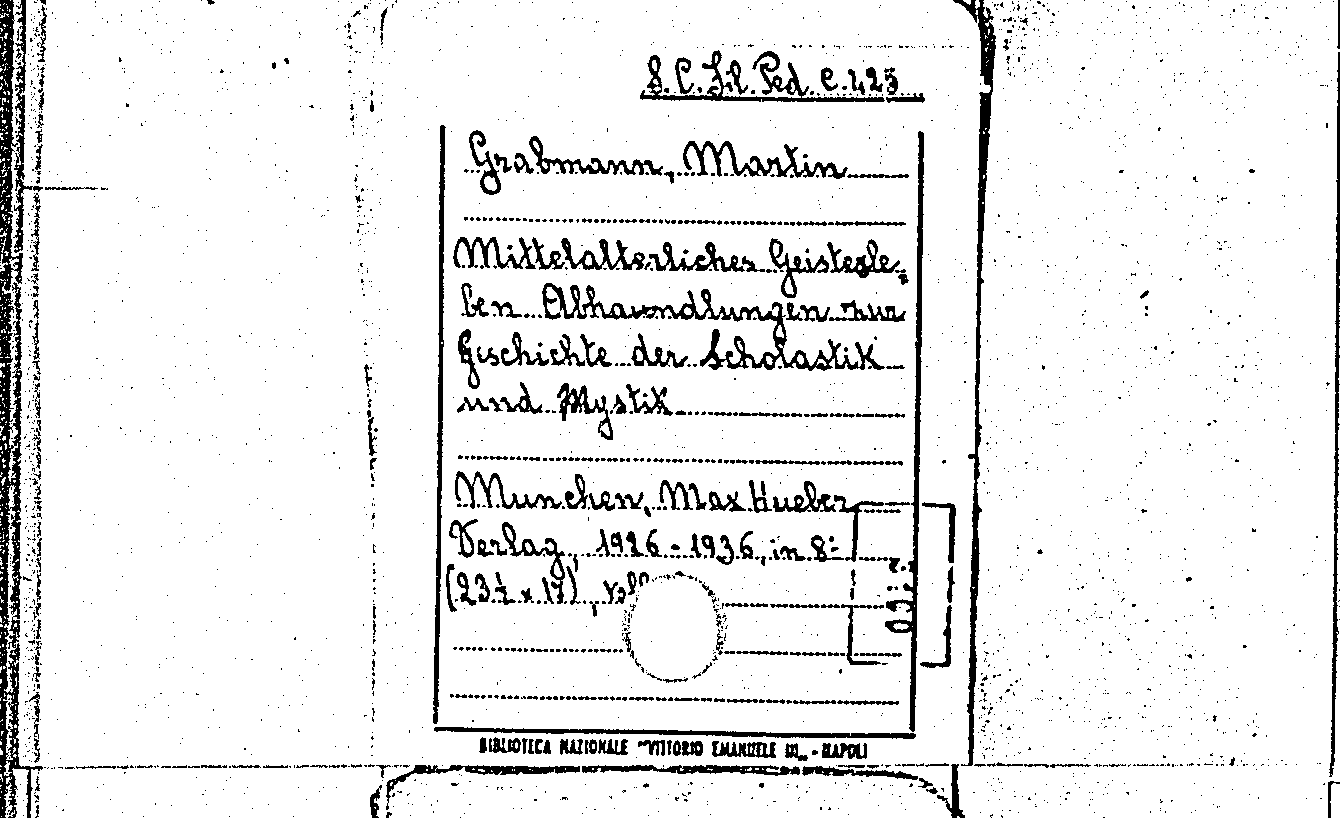 S. C. Fil. Ped. C. 425
Grabmann, Martin
Mittelalterliches Geistesle=
ben Abhaundlungen zur
Geschichte der Scholastik
und Mystik
Munchen, Max Hueber
Verlag, 1926 - 1936, in 8:
(23½ x 17),
BIBLIOTECA NAZIONALE "VITTORIO EMANUELE III" - NAPOLI